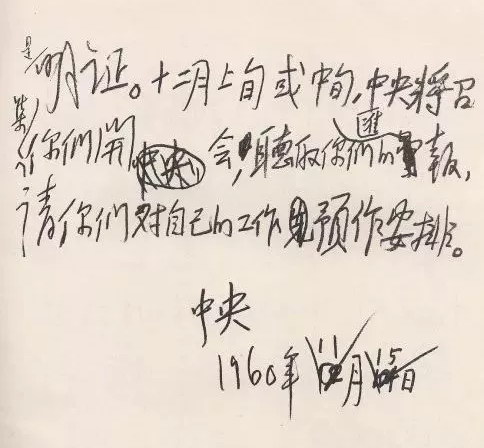 是明证。十二月上旬或中旬,中央将召
集你们开会,听取你们的汇報,
请你们对自己的工作预作安排。
中央
1960年11月15日